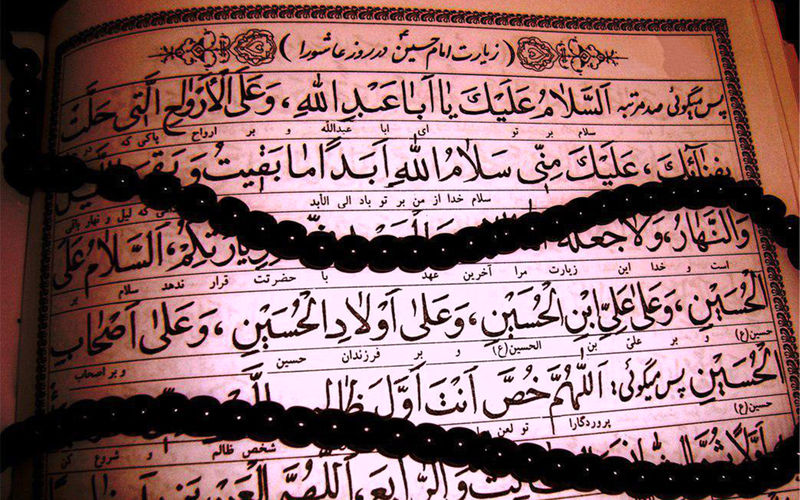 زیارت امام حسین در روز عاشورا
پس میگوئی صد مرتبه اَلسَّلامُ عَلَیْكَ یٰا اَبٰا عَبْدِ اللّٰهِ، وَعَلَی الْاَرْوٰاحِ الَّتی حَلَّتْ
سلام بر تو ای ابا عبدالله و بر ارواح پاکی که
بِفِنٰائِكَ، عَلَیْكَ مِنّی سَلٰامُ اللّٰهِ اَبَداً مٰا بَقیٖتُ وَ بَقِیَ اللَّیْلُ
سلام خدا از من بر تو باد الی الأبد
وَالنَّهٰارُ، وَلٰا جَعَلَهُ لِزِیٰارَتِکُمْ، اَلسَّلٰامُ عَلَی
است و خدا این زیارت مرا آخرین عهد با حضرتت قرار ندهد سلام بر
الْحُسَیْنِ، وَعَلیٰ عَلِیِّ ابْنِ الْحُسَیْنِ، وَعَلیٰ اَوْلٰادِ الْحُسَیْنِ، وَعَلیٰ اَصْحٰابِ
حسین(ع) و بر علی بن الحسین(ع) و بر فرزندان حسین و بر اصحاب
الْحُسَیْنِ پس میگوئی: اَللّٰهُمَّ خُصَّ اَنْتَ اَوَّلَ ظٰالِمٍ
حسین(ع) پروردگارا تو لعن شخص ظالم و شروع کن
اَوَّلاً ثُمَّ وَالرّٰابِعَ، اَللّٰهُمَّ الْعَنْ